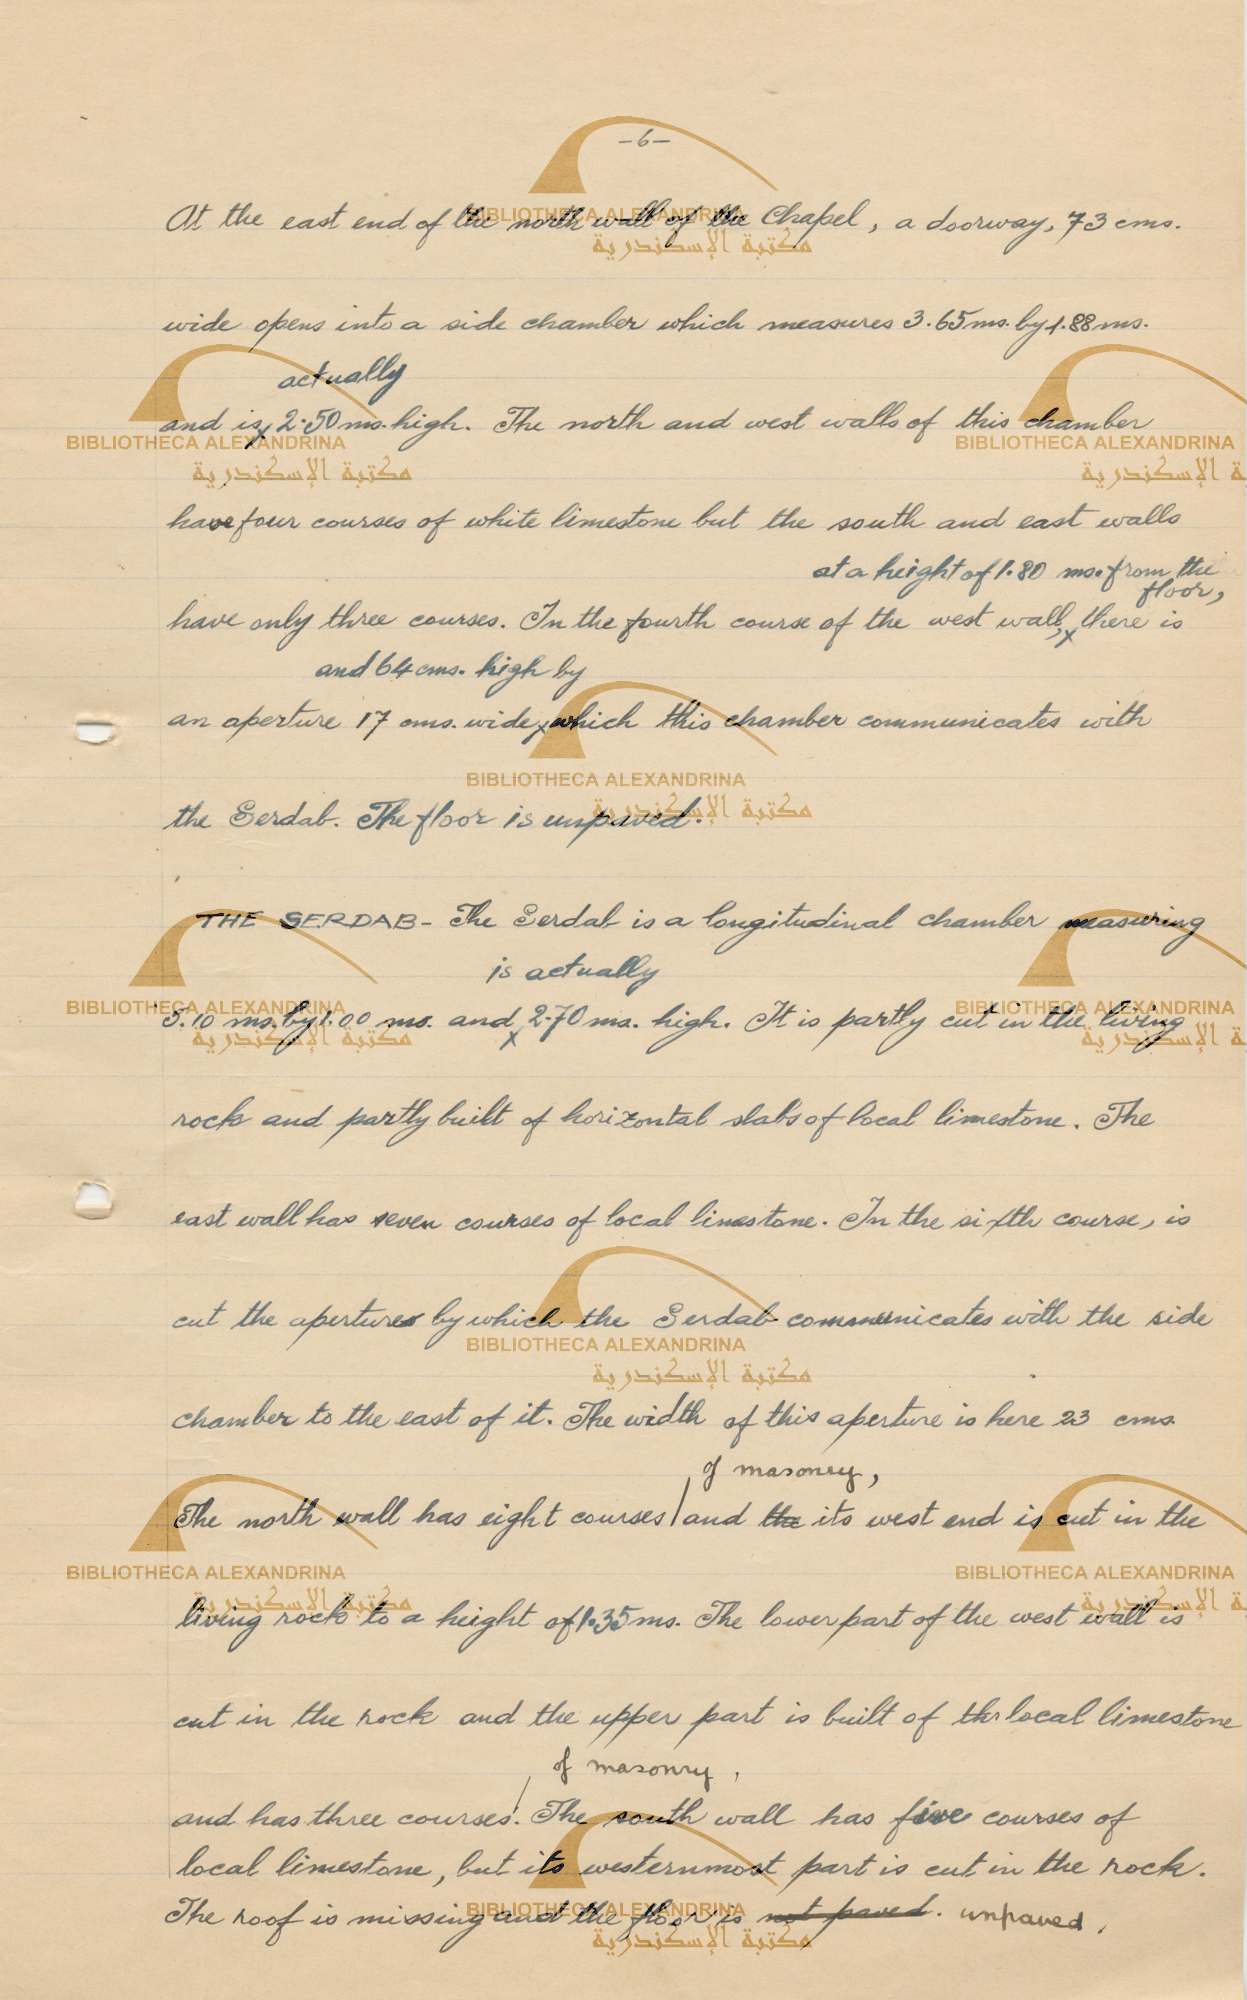 -6-
At the east end of the north wall of the Chapel, a doorway, 73 cms.
wide opens into a side chamber which measures 3.65 ms. by 1.88 ms.
actually
and is x 2.50 ms. high. The north and west walls of this chamber
have four courses of white limestone but the south and east walls
at a height of 1.80 ms. from the
floor,
have only three courses. In the fourth course of the west wall, x there is
and 64 cms. high by
an aperture 17 cms. wide x which this chamber communicates with
the Serdab. The floor is unpaved.
THE SERDAB - The Serdab is a longitudinal chamber measuring
is actually
5.10 ms. by 1.00 ms. and x 2.70 ms. high. It is partly cut in the living
rock and partly built of horizontal slabs of local limestone. The
east wall has seven courses of local limestone. In the sixth course, is
cut the aperture by which the Serdab communicates with the side
chamber to the east of it. The width of this aperture is here 23 cms.
of masonry,
The north wall has eight courses / and the its west end is cut in the
living rock to a height of 1.35 ms. The lower part of the west wall is
cut in the rock and the upper part is built of the local limestone
of masonry.
and has three courses. / The south wall has five courses of
local limestone, but its westernmost part is cut in the rock.
The roof is missing and the floor is not paved. unpaved.
BIBLIOTHECA ALEXANDRINA
مكتبة الإسكندرية
BIBLIOTHECA ALEXANDRINA
مكتبة الإسكندرية
BIBLIOTHECA ALEXANDRINA
مكتبة الإسكندرية
BIBLIOTHECA ALEXANDRINA
مكتبة الإسكندرية
BIBLIOTHECA ALEXANDRINA
مكتبة الإسكندرية
BIBLIOTHECA ALEXANDRINA
مكتبة الإسكندرية
BIBLIOTHECA ALEXANDRINA
مكتبة الإسكندرية
BIBLIOTHECA ALEXANDRINA
مكتبة الإسكندرية
BIBLIOTHECA ALEXANDRINA
مكتبة الإسكندرية
BIBLIOTHECA ALEXANDRINA
مكتبة الإسكندرية